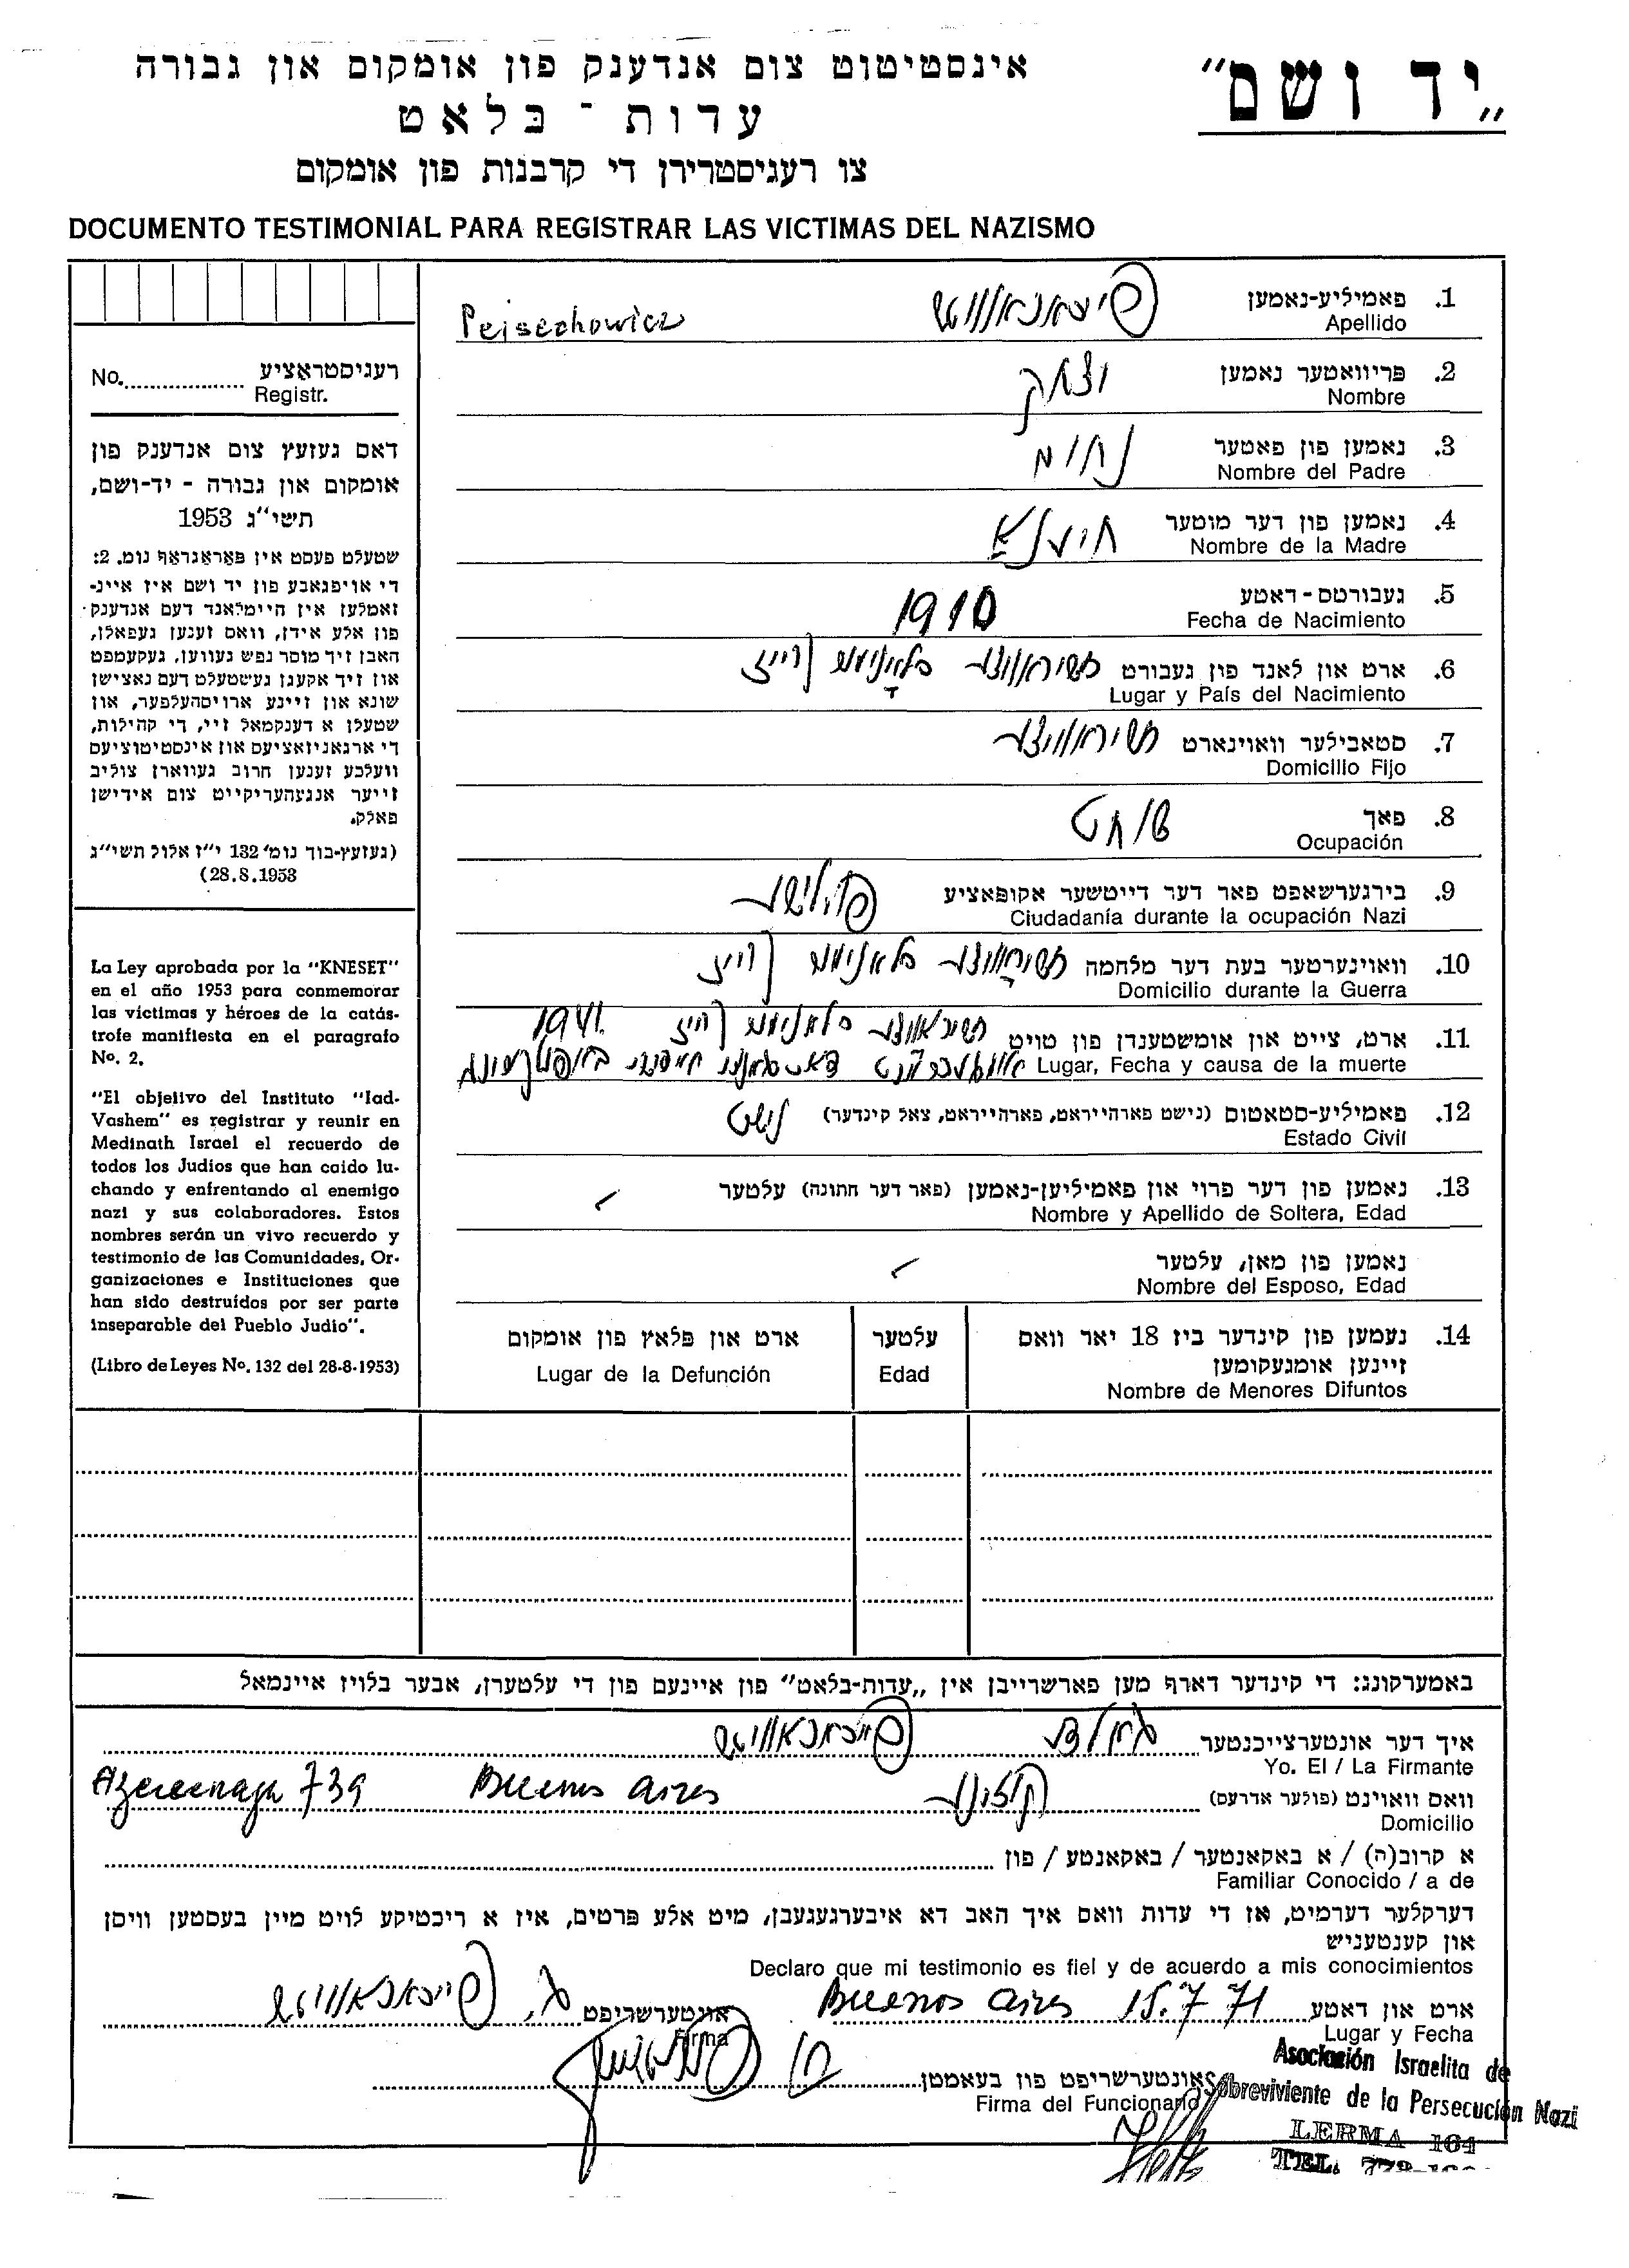 „יד ושם"
אינסטיטוט צום אנדענק פון אומקום און גבורה
עדות - בלאט
צו רעגיסטרירן די קרבנות פון אומקום
DOCUMENTO TESTIMONIAL PARA REGISTRAR LAS VICTIMAS DEL NAZISMO
רעגיסטראציע No.
Registr.
דאס געזעץ צום אנדענק פון
אומקום און גבורה - יד-ושם,
תשי"ג 1953
שטעלט פעסט אין פאראגראף נומ. 2:
די אויפגאבע פון יד ושם איז איינ-
זאמלען אין היימלאנד דעם אנדענק
פון אלע אידן, וואס זענען געפאלן,
האבן זיך מוסר נפש געווען, געקעמפט
און זיך אקעגן געשטעלט דעם נאצישן
שונא און זיינע ארויסהעלפער, און
שטעלן א דענקמאל זיי, די קהילות,
די ארגאניזאציעס און אינסטיטוציעס
וועלכע זענען חרוב געווארן צוליב
זייער אנגעהעריקייט צום אידישן
פאלק.
(געזעץ-בוך נומ' 132 י"ז אלול תשי"ג
28.8.1953)
La Ley aprobada por la "KNESET"
en el año 1953 para conmemorar
las victimas y héroes de la catás-
trofe manifiesta en el paragrafo
No. 2.
"El objetivo del Instituto "Iad-
Vashem" es registrar y reunir en
Medinath Israel el recuerdo de
todos los Judios que han caido lu-
chando y enfrentando al enemigo
nazi y sus colaboradores. Estos
nombres serán un vivo recuerdo y
testimonio de las Comunidades, Or-
ganizaciones e Instituciones que
han sido destruídos por ser parte
inseparable del Pueblo Judio".
(Libro de Leyes No. 132 del 28-8-1953)
1. פאמיליע-נאמען Pejsechowicz
Apellido
2. פריוואטער נאמען יצחק
Nombre
3. נאמען פון פאטער נחום
Nombre del Padre
4. נאמען פון דער מוטער
Nombre de la Madre
5. געבורטס-דאטע 1910
Fecha de Nacimiento
6. ארט און לאנד פון געבורט
Lugar y País del Nacimiento
7. סטאבילער וואוינארט
Domicilio Fijo
8. פאך שוחט
Ocupación
9. בירגערשאפט פאר דער דייטשער אקופאציע פוילישע
Ciudadanía durante la ocupación Nazi
10. וואוינערטער בעת דער מלחמה
Domicilio durante la Guerra
11. ארט, צייט און אומשטענדן פון טויט 1941
Lugar, Fecha y causa de la muerte
12. פאמיליע-סטאטוס (נישט פארהייראט, פארהייראט, צאל קינדער) נישט
Estado Civil
13. נאמען פון דער פרוי און פאמיליען-נאמען (פאר דער חתונה) עלטער
Nombre y Apellido de Soltera, Edad
נאמען פון מאן, עלטער
Nombre del Esposo, Edad
14. נעמען פון קינדער ביז 18 יאר וואס עלטער ארט און פלאץ פון אומקום
זיינען אומגעקומען
Nombre de Menores Difuntos Edad Lugar de la Defunción
באמערקונג: די קינדער דארף מען פארשרייבן אין „עדות-בלאט" פון איינעם פון די עלטערן, אבער בלויז איינמאל
איך דער אונטערצייכנטער
Yo. El / La Firmante
וואס וואוינט (פולער אדרעס) קוזינע Buenos aires 739
Domicilio
א קרוב(ה) / א באקאנטער / באקאנטע / פון
Familiar Conocido / a de
דערקלער דערמיט, אז די עדות וואס איך האב דא איבערגעגעבן, מיט אלע פרטים, איז א ריכטיקע לויט מיין בעסטען וויסן
און קענטעניש
Declaro que mi testimonio es fiel y de acuerdo a mis conocimientos
ארט און דאטע Buenos aires 15.7.71 אונטערשריפט
Lugar y Fecha Firma
אונטערשריפט פון בעאמטן
Firma del Funcionario
Asociación Israelita de
Sobreviviente de la Persecución Nazi
LERMA 164
TEL.